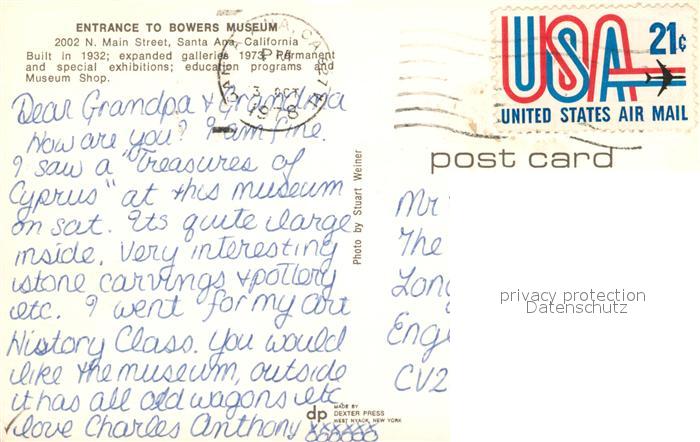 ENTRANCE TO BOWERS MUSEUM
2002 N. Main Street, Santa Ana, California
Built in 1932; expanded galleries 1973. Permanent
and special exhibitions; education programs and
Museum Shop.
SANTA ANA, CA
PM
3 OCT
1978
USA 21¢
UNITED STATES AIR MAIL
post card
Dear Grandpa & Grandma
How are you? I am fine.
I saw a "Treasures of
Cyprus" at this museum
on sat. Its quite large
inside. Very interesting
stone carvings & pottery
etc. I went for my art
History Class. You would
like the museum, outside
it has all old wagons etc
love Charles Anthony xxxxxx
oooooo
Photo by Stuart Weiner
dp MADE BY
DEXTER PRESS
WEST NYACK, NEW YORK
Mr
The
Long
Eng
CV2
privacy protection
Datenschutz